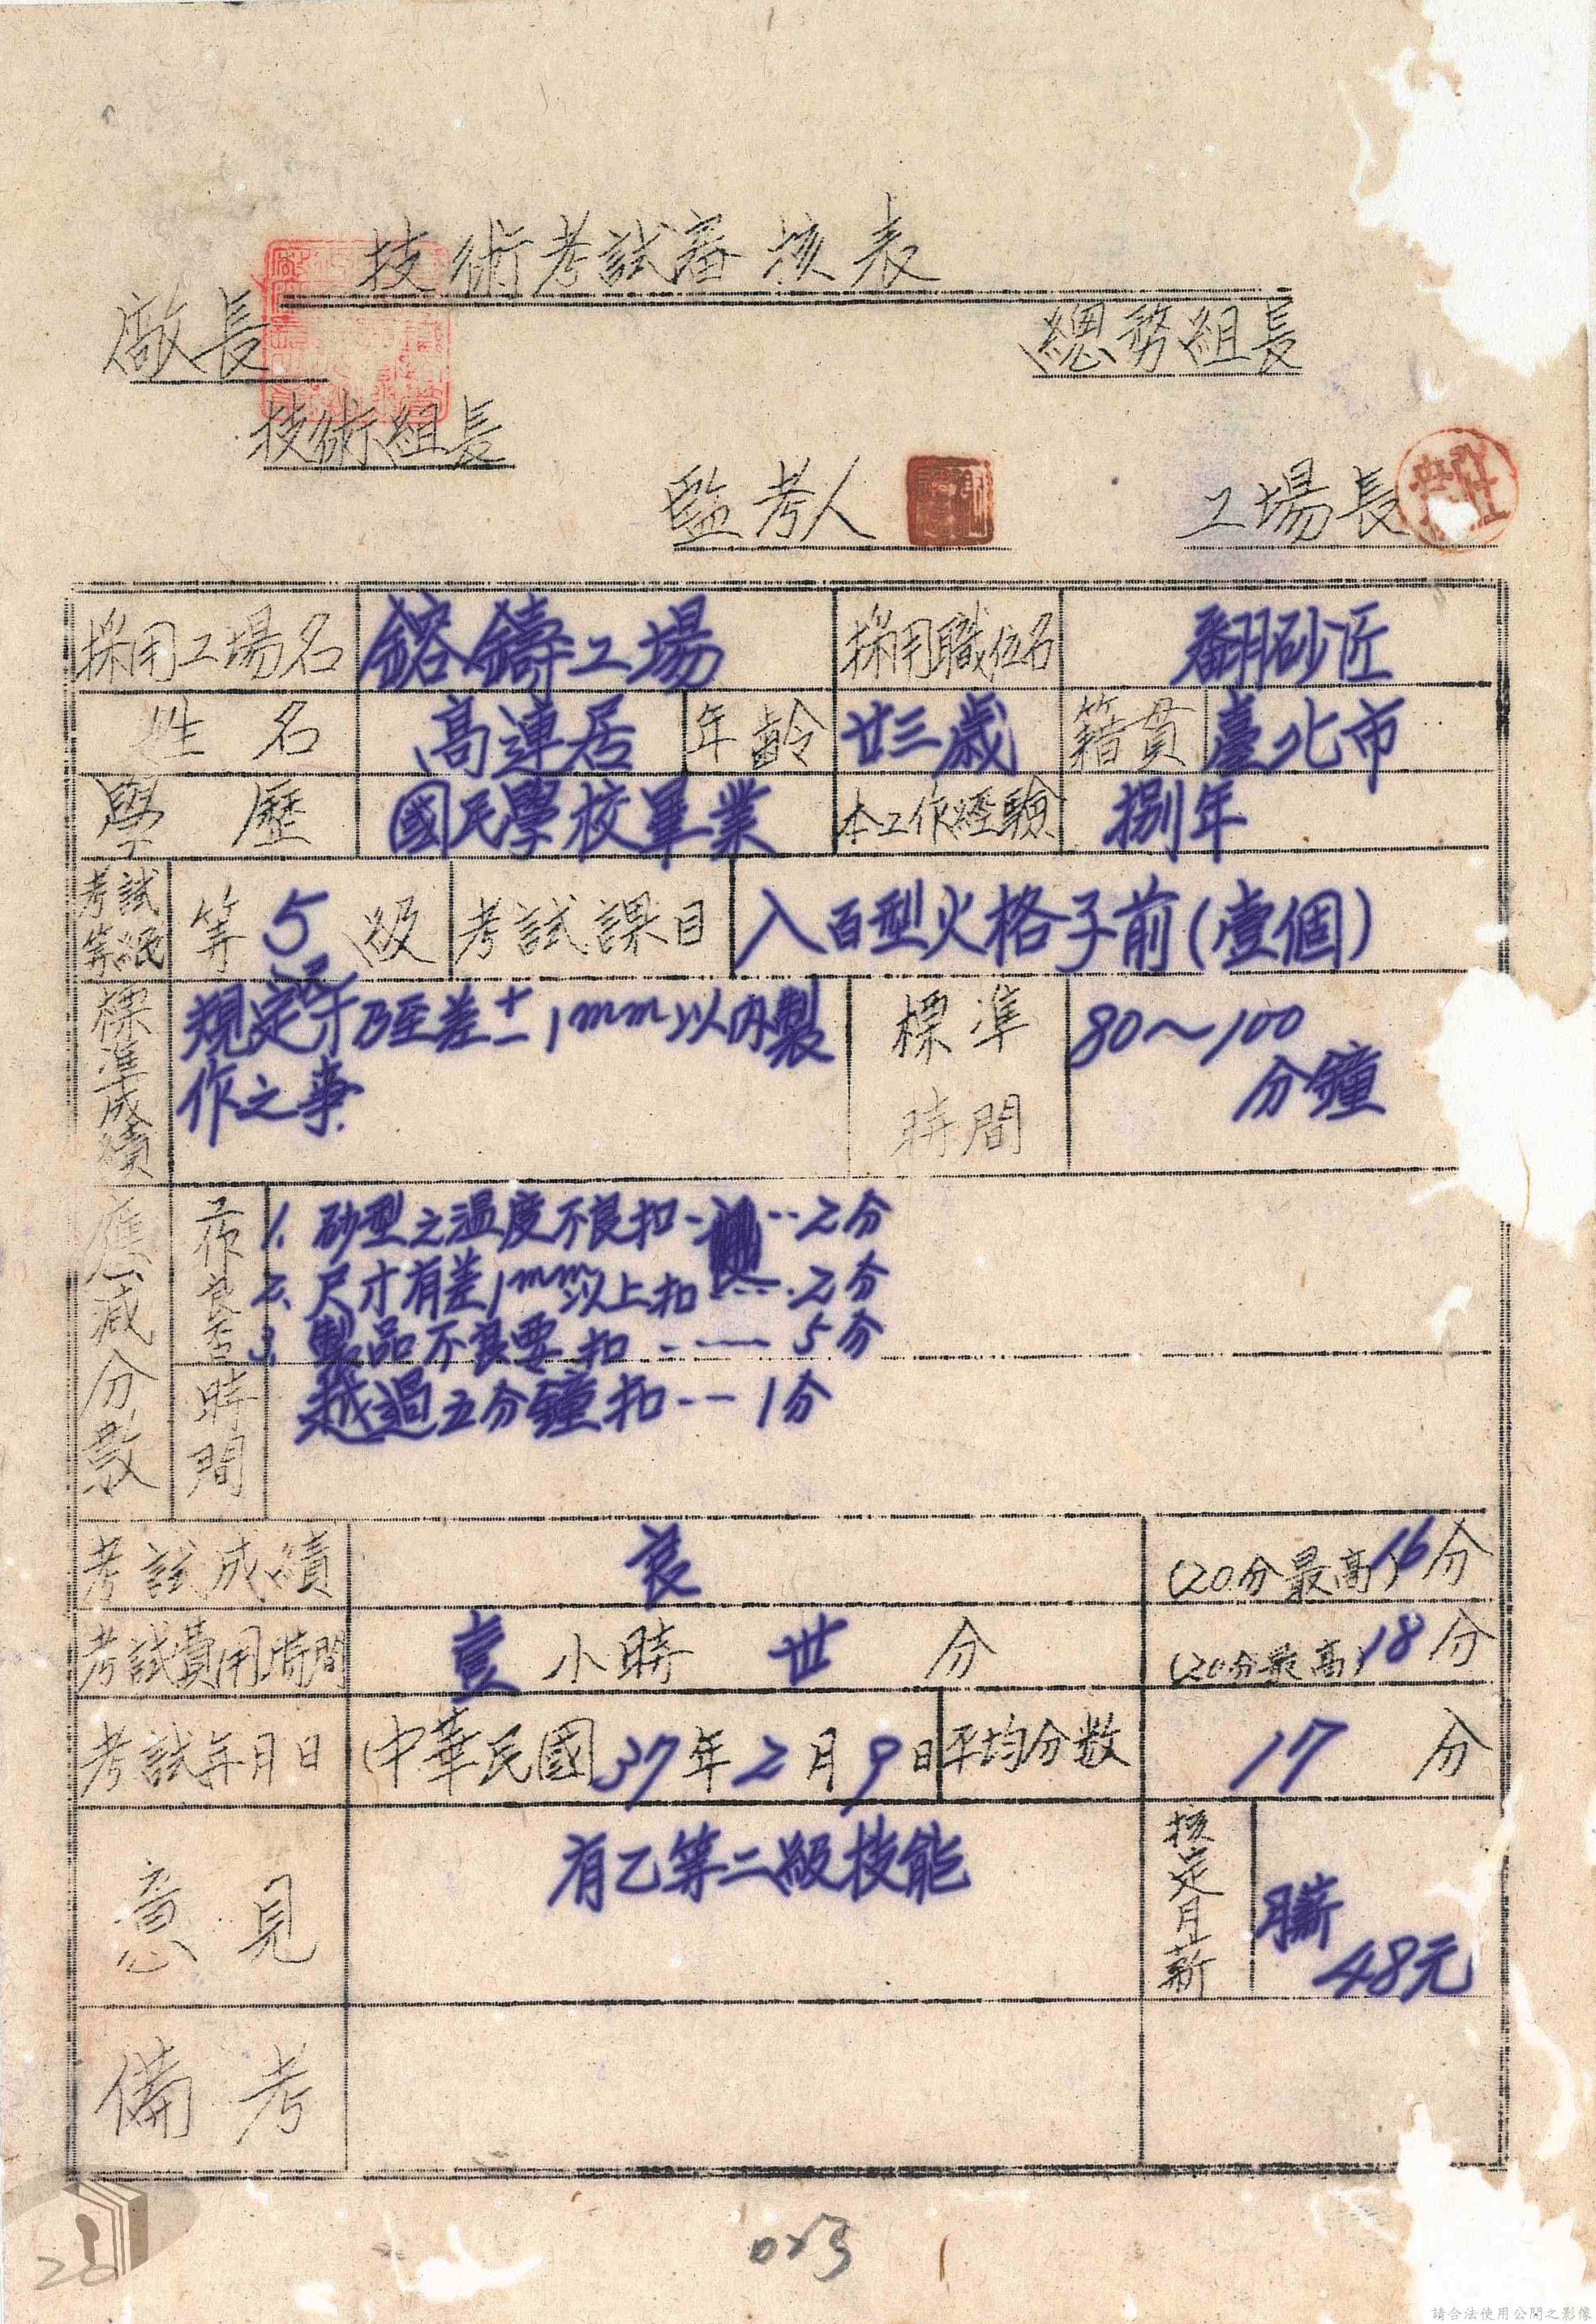 技術考試審核表
廠長
總務組長
技術組長
監考人
工場長
採用工場名 鎔鑄工場 採用職位名 翻砂匠
姓名 高連居 年齡 廿三歲 籍貫 臺北市
學歷 國民學校畢業 本工作經驗 捌年
考試等級 等5級 考試課目 入百型火格子前(壹個)
標準成績 規定寸乃至差±1mm以內製
作之事
標準時間 80~100
分鐘
應減分數
工作良否
1. 砂型之溫度不良扣-----2分
2. 尺寸有差1mm以上扣-----2分
3. 製品不良要扣-----5分
時間 越過五分鐘扣---1分
考試成績 良 (20分最高)16分
考試費用時間 壹小時廿分 (20分最高)18分
考試年月日 中華民國37年2月9日 平均分數 17分
意見 有乙等二級技能 核定月薪 月薪
48元
備考
023
20
請合法使用公開之影像